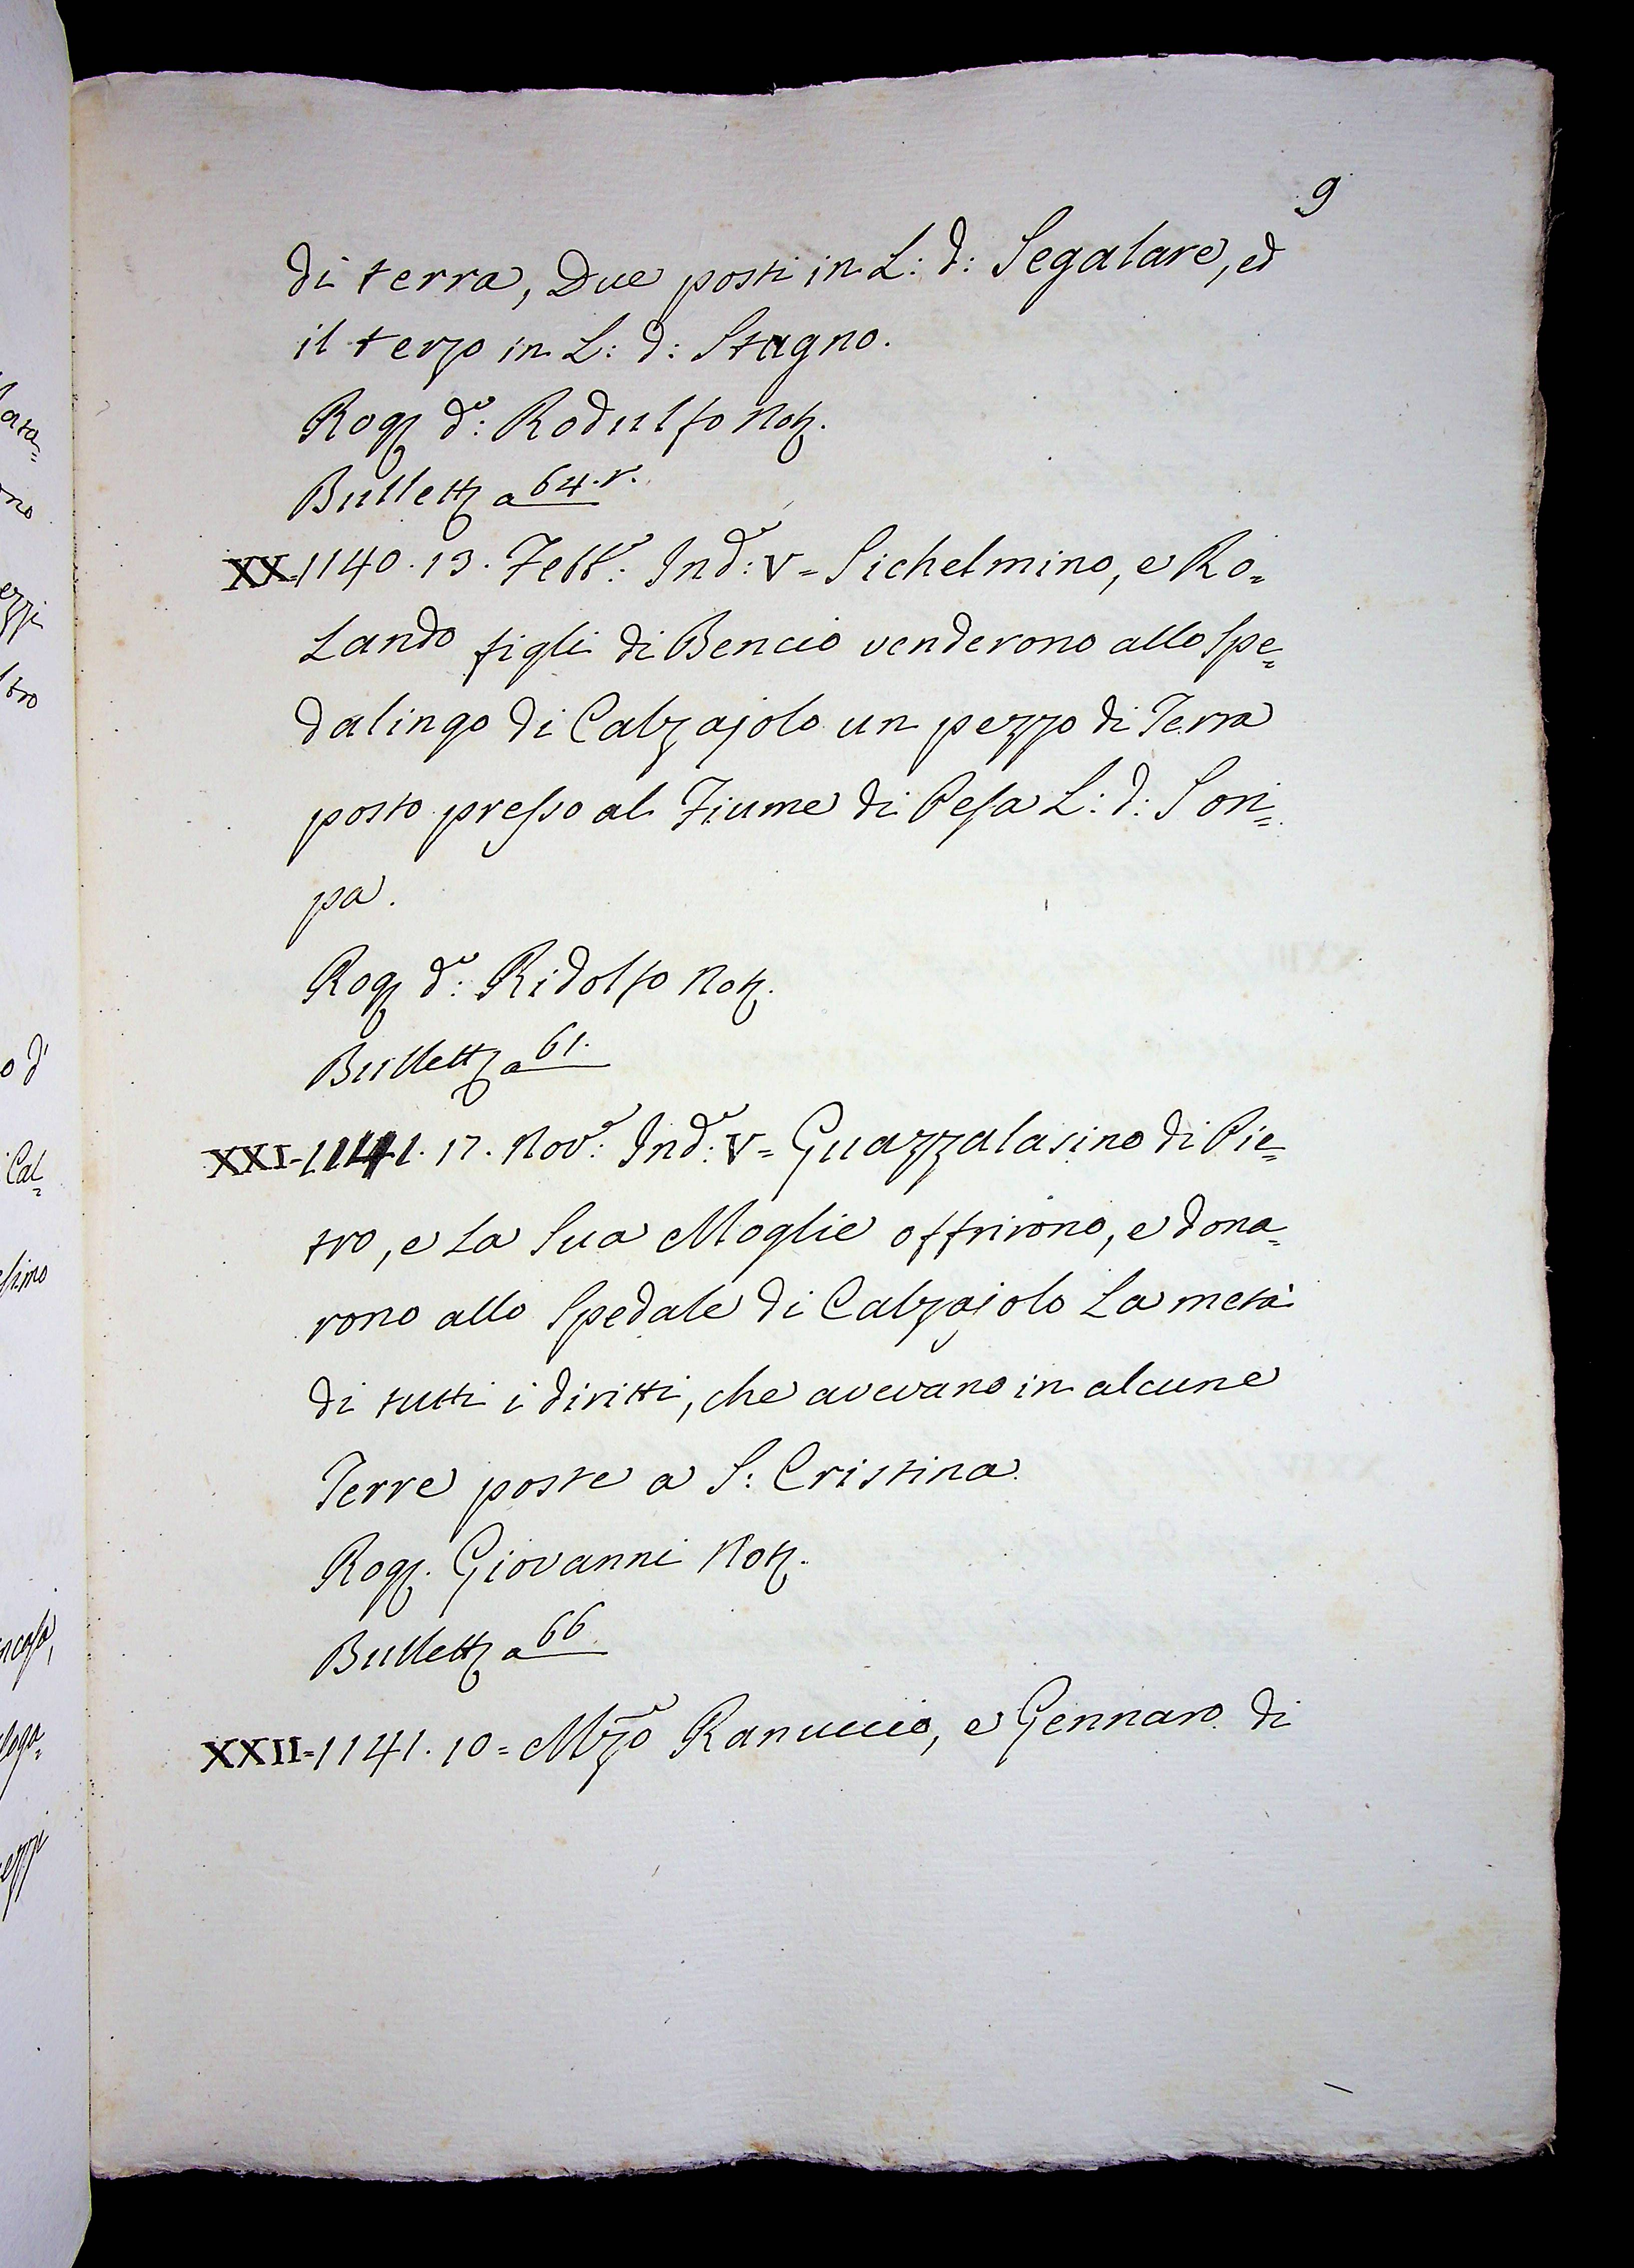 9
di terra, Due posti in L: d: Segalare, ed
il terzo in L: d: Stagno.
Rog. d.º: Rodulfo Not.
Bullett. a 64. r.
XX-1140. 13. Febb.º: Ind.e: V= Sichelmino, e Ro=
lando figli di Bencio venderono allo Spe=
dalingo di Calzajolo un pezzo di Terra
posto presso al Fiume di Pesa L: d: Sori=
pa.
Rog. d.º: Ridolfo Not.
Bullett. a 61.
XXI-1141. 17. Nov.e: Ind.e: V= Guazzalasino di Pie=
tro, e la Sua Moglie offrirono, e dona=
rono allo Spedale di Calzajolo la metà
di tutti i diritti, che avevano in alcune
Terre poste a S: Cristina.
Rog. Giovanni Not.
Bullett. a 66.
XXII=1141. 10= Mzo Ranuccio, e Gennaro di